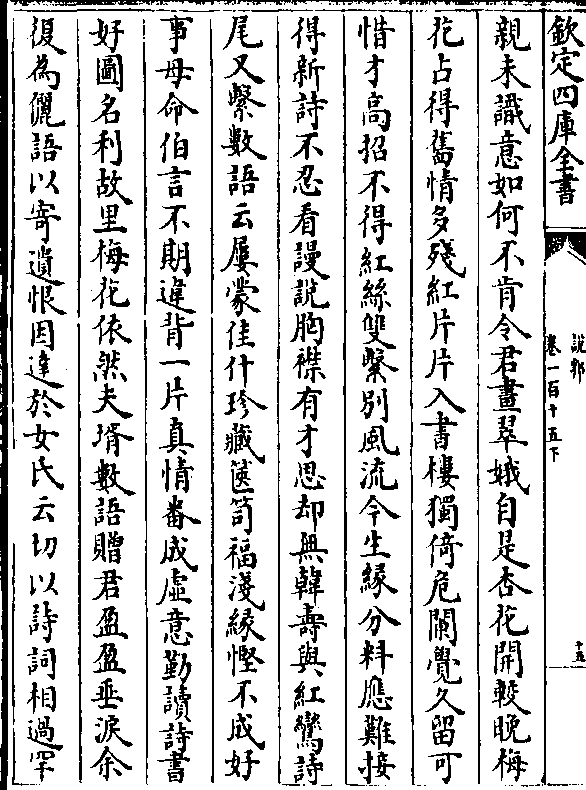 欽定四庫全書
說郛
卷一百十五下
十五
親未識意如何不肯令君畫翠娥自是杏花開較晚梅
花占得舊情多殘紅片片入書樓獨倚危闌覺久留可
惜才高招不得紅絲雙繫別風流今生緣分料應難接
得新詩不忍看謾說胸襟有才思却無韓壽與紅鸞詩
尾又繫數語云屢蒙佳什珍藏篋笥福淺緣慳不成好
事母命伯言不期違背一片真情番成虛意勤讀詩書
好圖名利故里梅花依然夫壻數語贈君盈盈垂淚余
復為儷語以寄遺恨因達於女氏云切以詩詞相過罕